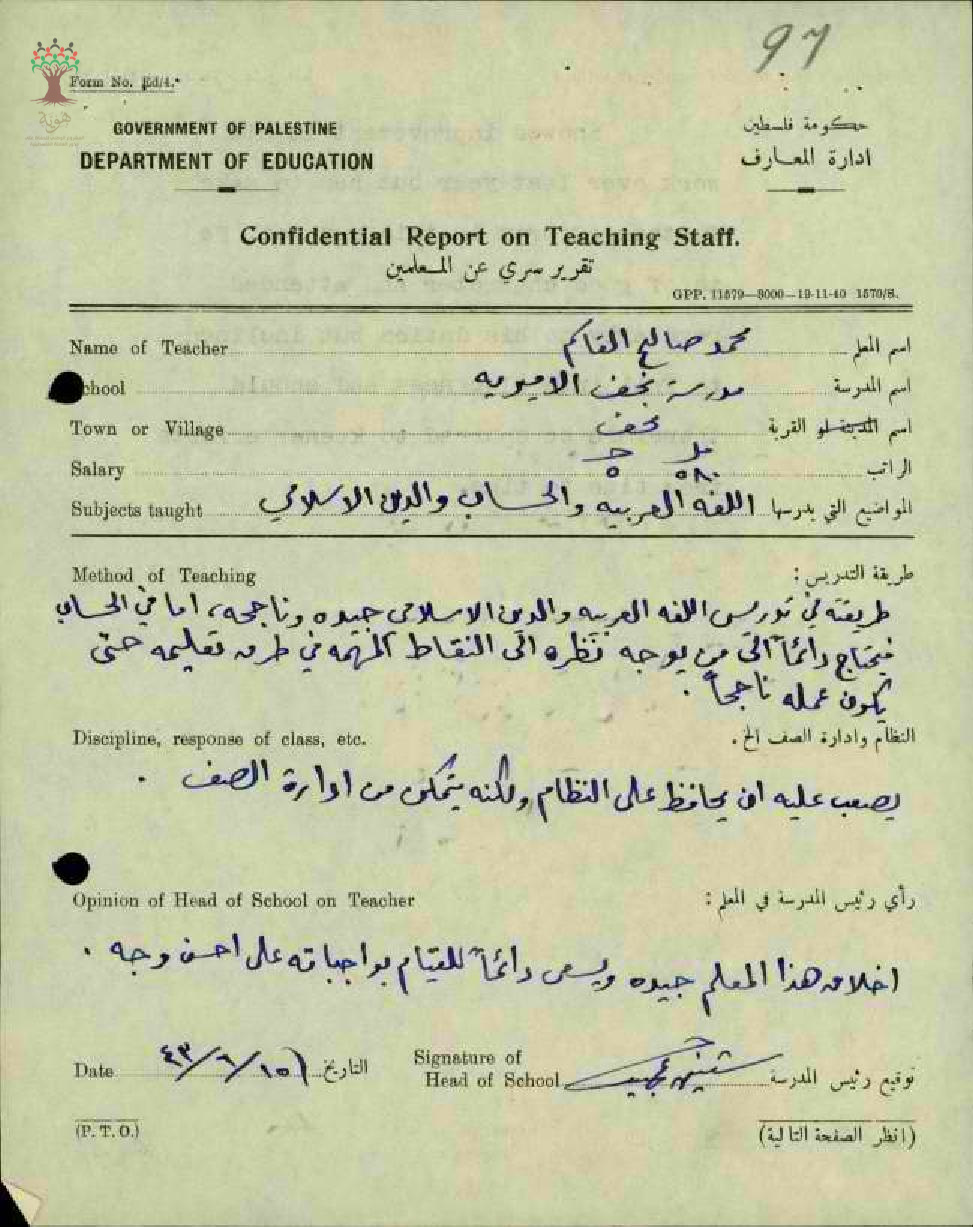 97
هوية
Form No. Ed/4.
GOVERNMENT OF PALESTINE
حكومة فلسطين
DEPARTMENT OF EDUCATION
ادارة المعارف
Confidential Report on Teaching Staff.
تقرير سري عن المعلمين
GPP. 11579—3000—19-11-40 1570/S.
Name of Teacher محمد صالح القاسم اسم المعلم
chool مدرسة نحف الاميريه اسم المدرسة
Town or Village نحف اسم المدينة او القرية
Salary الراتب
Subjects taught اللغه العربيه والحساب والدين الاسلامي المواضيع التي يدرسها
Method of Teaching طريقة التدريس :
طريقته في تدريس اللغه العربيه والدين الاسلامي جيده وناجحه، اما في الحساب
فيحتاج دائماً الى من يوجه نظره الى النقاط المهمه في طرق تعليمه حتى
يكون عمله ناجحاً .
Discipline, response of class, etc. النظام وادارة الصف الخ .
يصعب عليه ان يحافظ على النظام ولكنه يتمكن من ادارة الصف .
Opinion of Head of School on Teacher رأي رئيس المدرسة في المعلم :
اخلاق هذا المعلم جيده ويسعى دائماً للقيام بواجباته على احسن وجه .
Date ١٥/٦/٤٣ التاريخ
Signature of
Head of School توقيع رئيس المدرسة
(P. T. O.) (انظر الصفحة التالية)